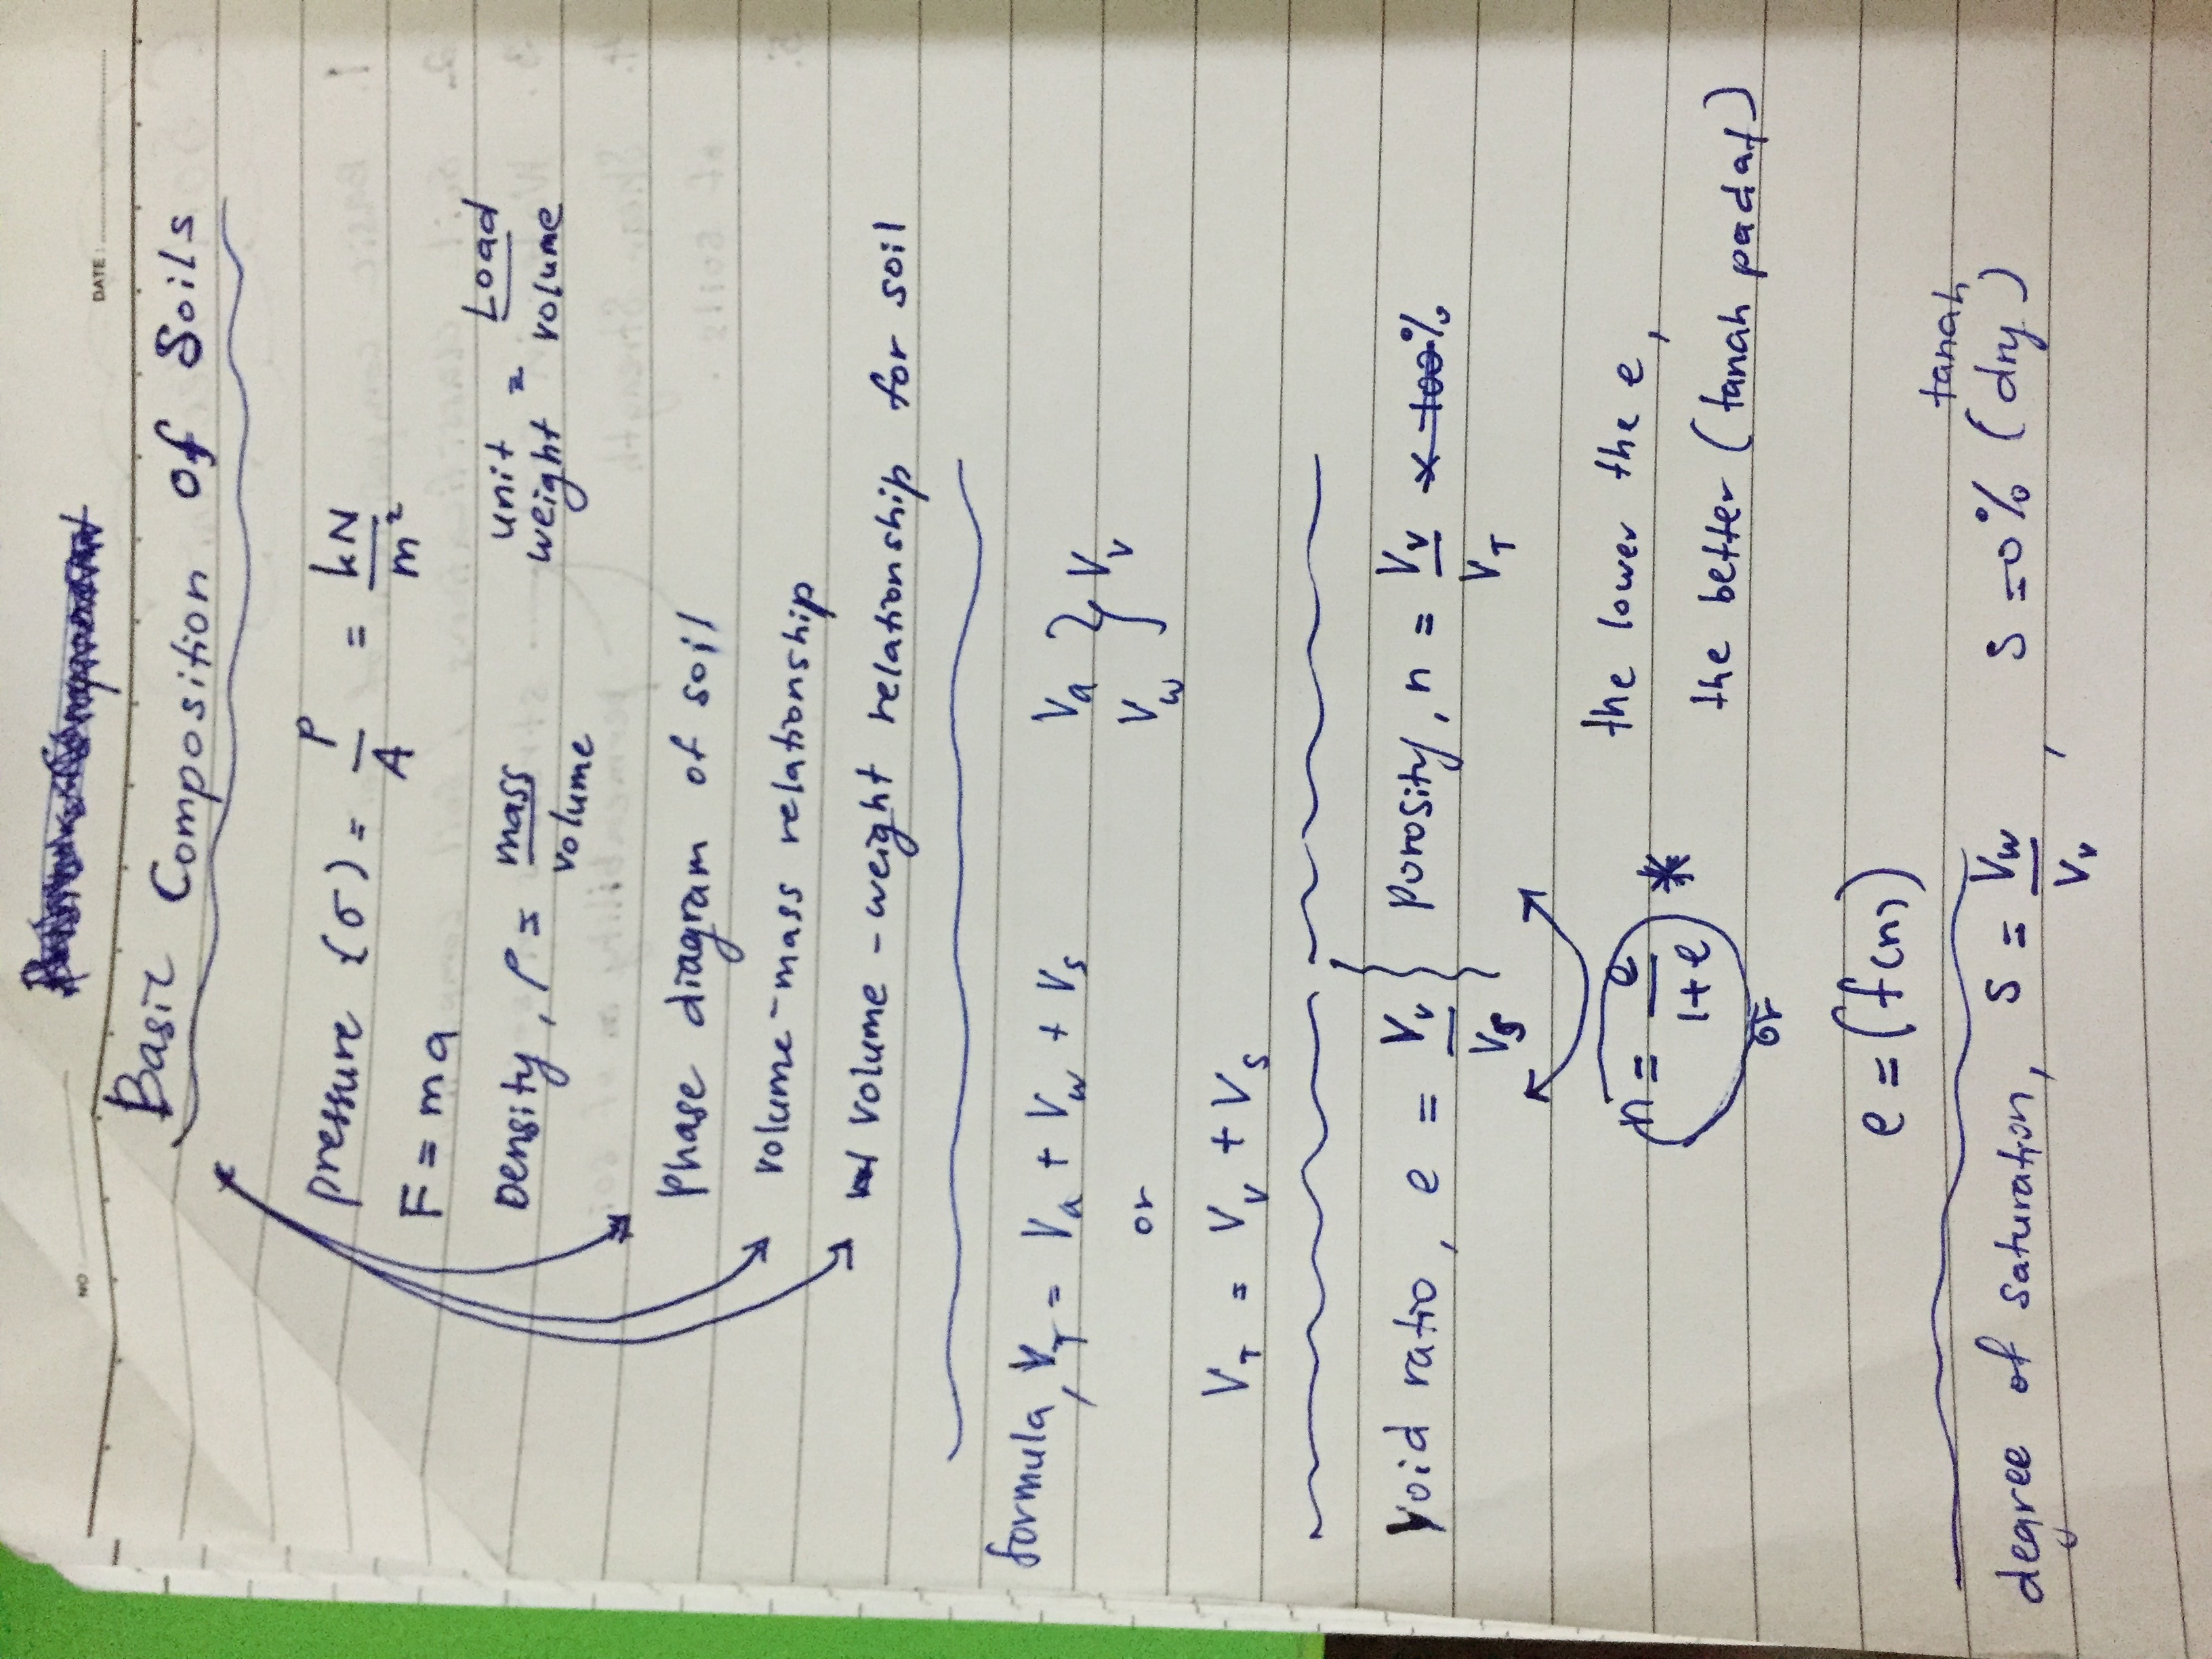 NO
DATE :
Basic Composition of Soils
pressure (σ) = P/A = kN/m²
F = ma
Density, ρ = mass/volume unit weight = Load/volume
Phase diagram of soil
volume-mass relationship
volume-weight relationship for soil
formula, V_T = V_a + V_w + V_s V_a V_w } V_v
or
V_T = V_v + V_s
Void ratio, e = V_v/V_s porosity, n = V_v/V_T × 100%
n = e/1+e * the lower the e,
or the better (tanah padat)
e = (f(n))
tanah
degree of saturation, S = V_w/V_v , S = 0% (dry)